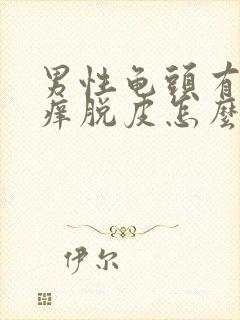 男性龟頭有
痒脱皮怎麼
伊尔